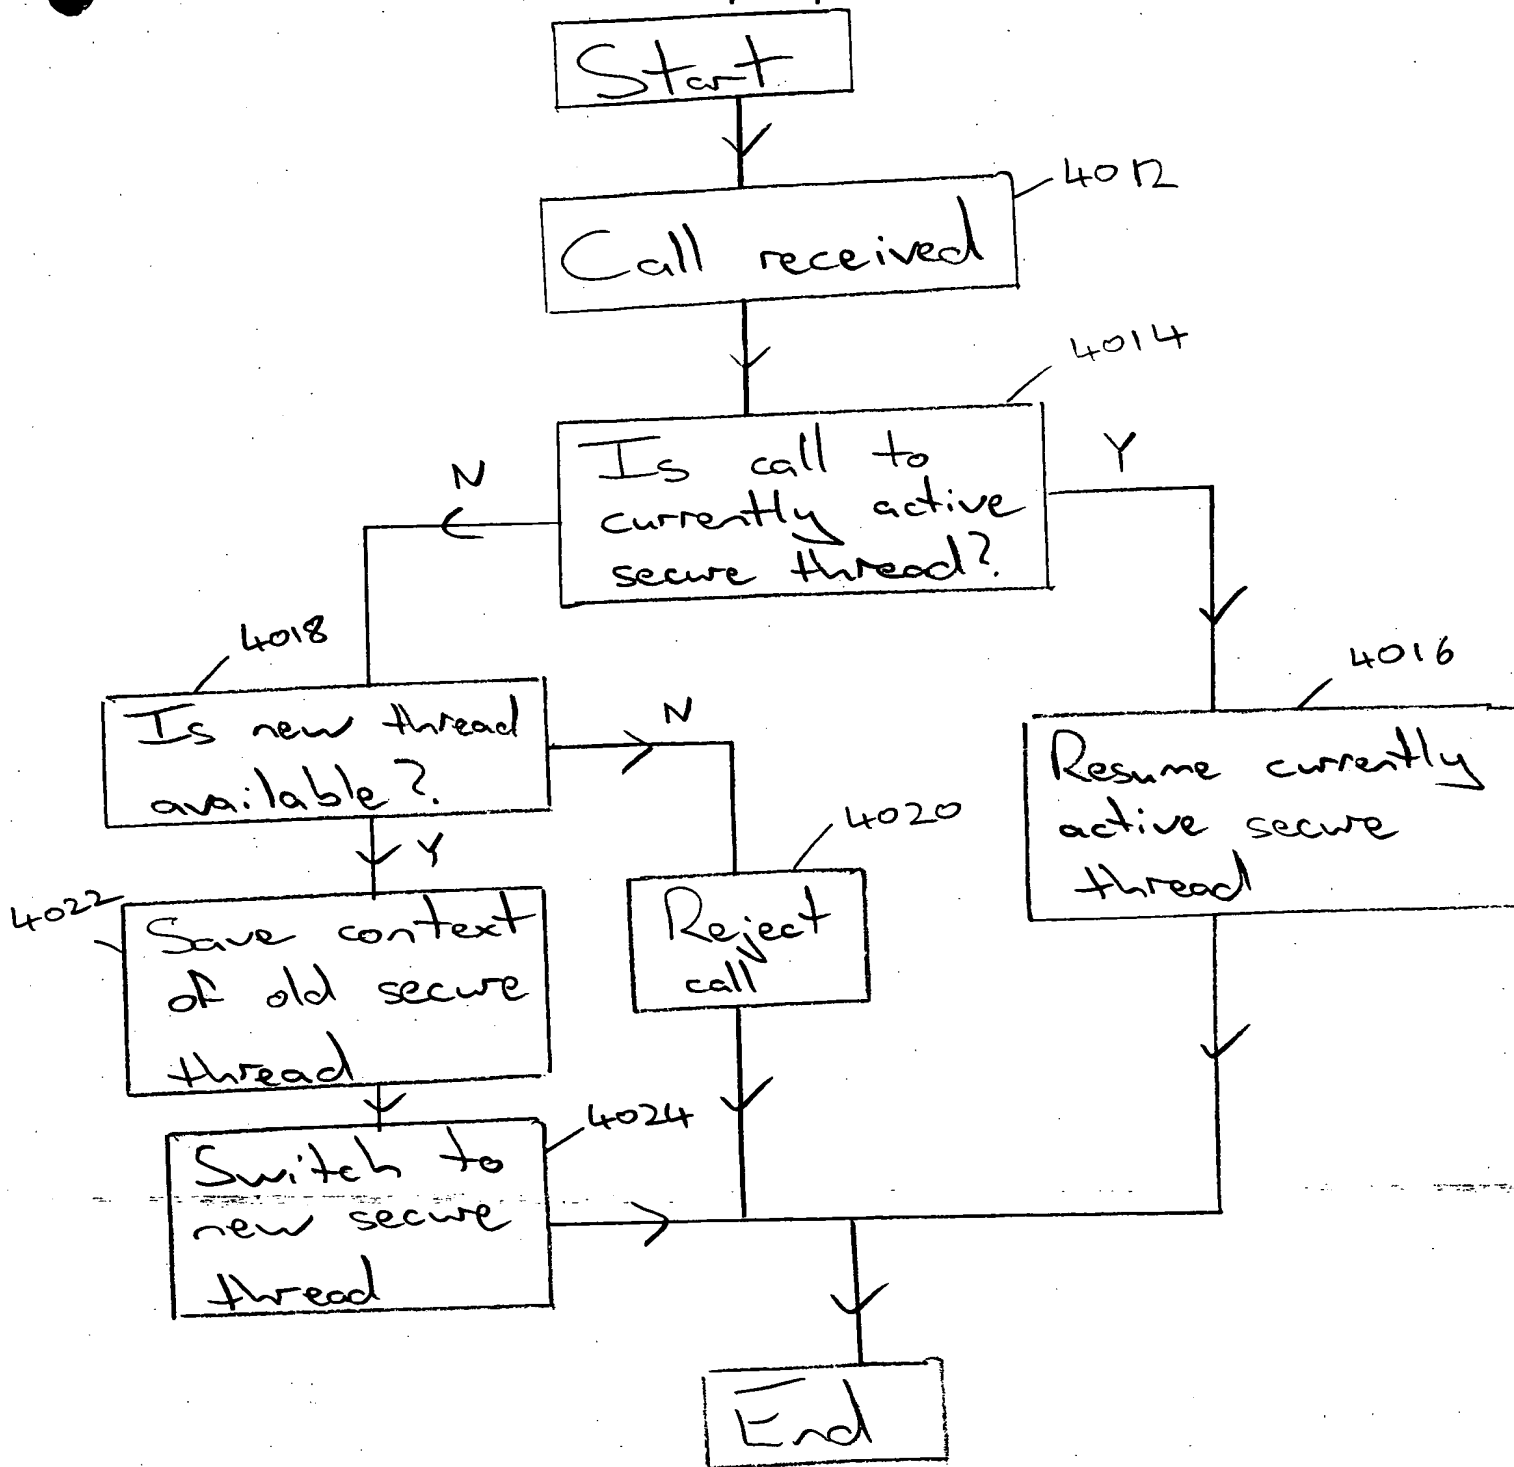 Start
4012
Call received
4014
Is call to
currently active
secure thread?
N
Y
4018
Is new thread
available?
N
Y
4016
Resume currently
active secure
thread
4020
Reject
call
4022
Save context
of old secure
thread
4024
Switch to
new secure
thread
End